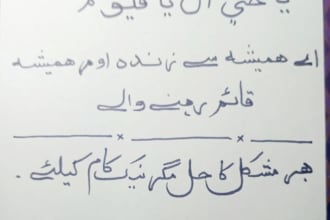 یا حي ال یا قیوم
اے ہمیشہ سے زندہ اور ہمیشہ
قائم رہنے والے
ہر مشکل کا حل مگر نیک کام کیلئے۔